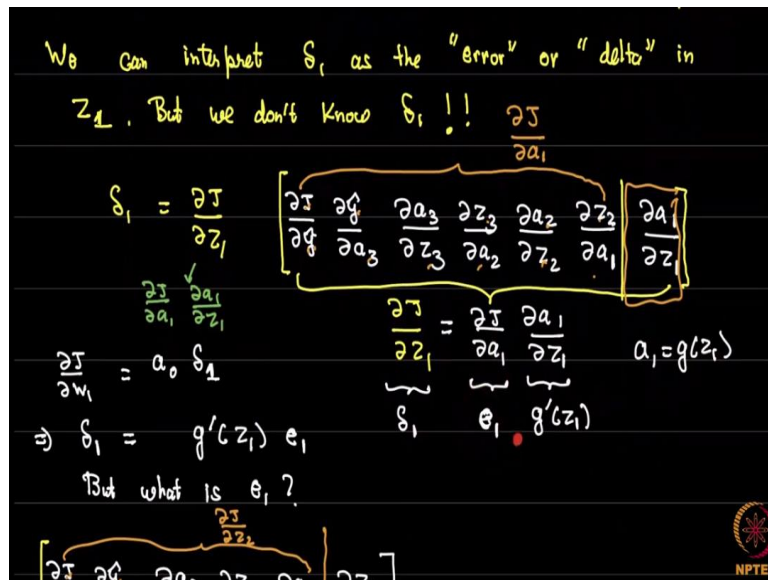 We can interpret δ₁ as the "error" or "delta" in
z₁. But we don't know δ₁!!
∂J/∂a₁
δ₁ = ∂J/∂z₁ [∂J/∂ŷ ∂ŷ/∂a₃ ∂a₃/∂z₃ ∂z₃/∂a₂ ∂a₂/∂z₂ ∂z₂/∂a₁ | ∂a₁/∂z₁]
∂J/∂a₁ ∂a₁/∂z₁
∂J/∂z₁ = ∂J/∂a₁ ∂a₁/∂z₁ a₁=g(z₁)
∂J/∂w₁ = a₀ δ₁
δ₁ e₁ g'(z₁)
⇒ δ₁ = g'(z₁) e₁
But what is e₁?
∂J/∂z₂
NPTE